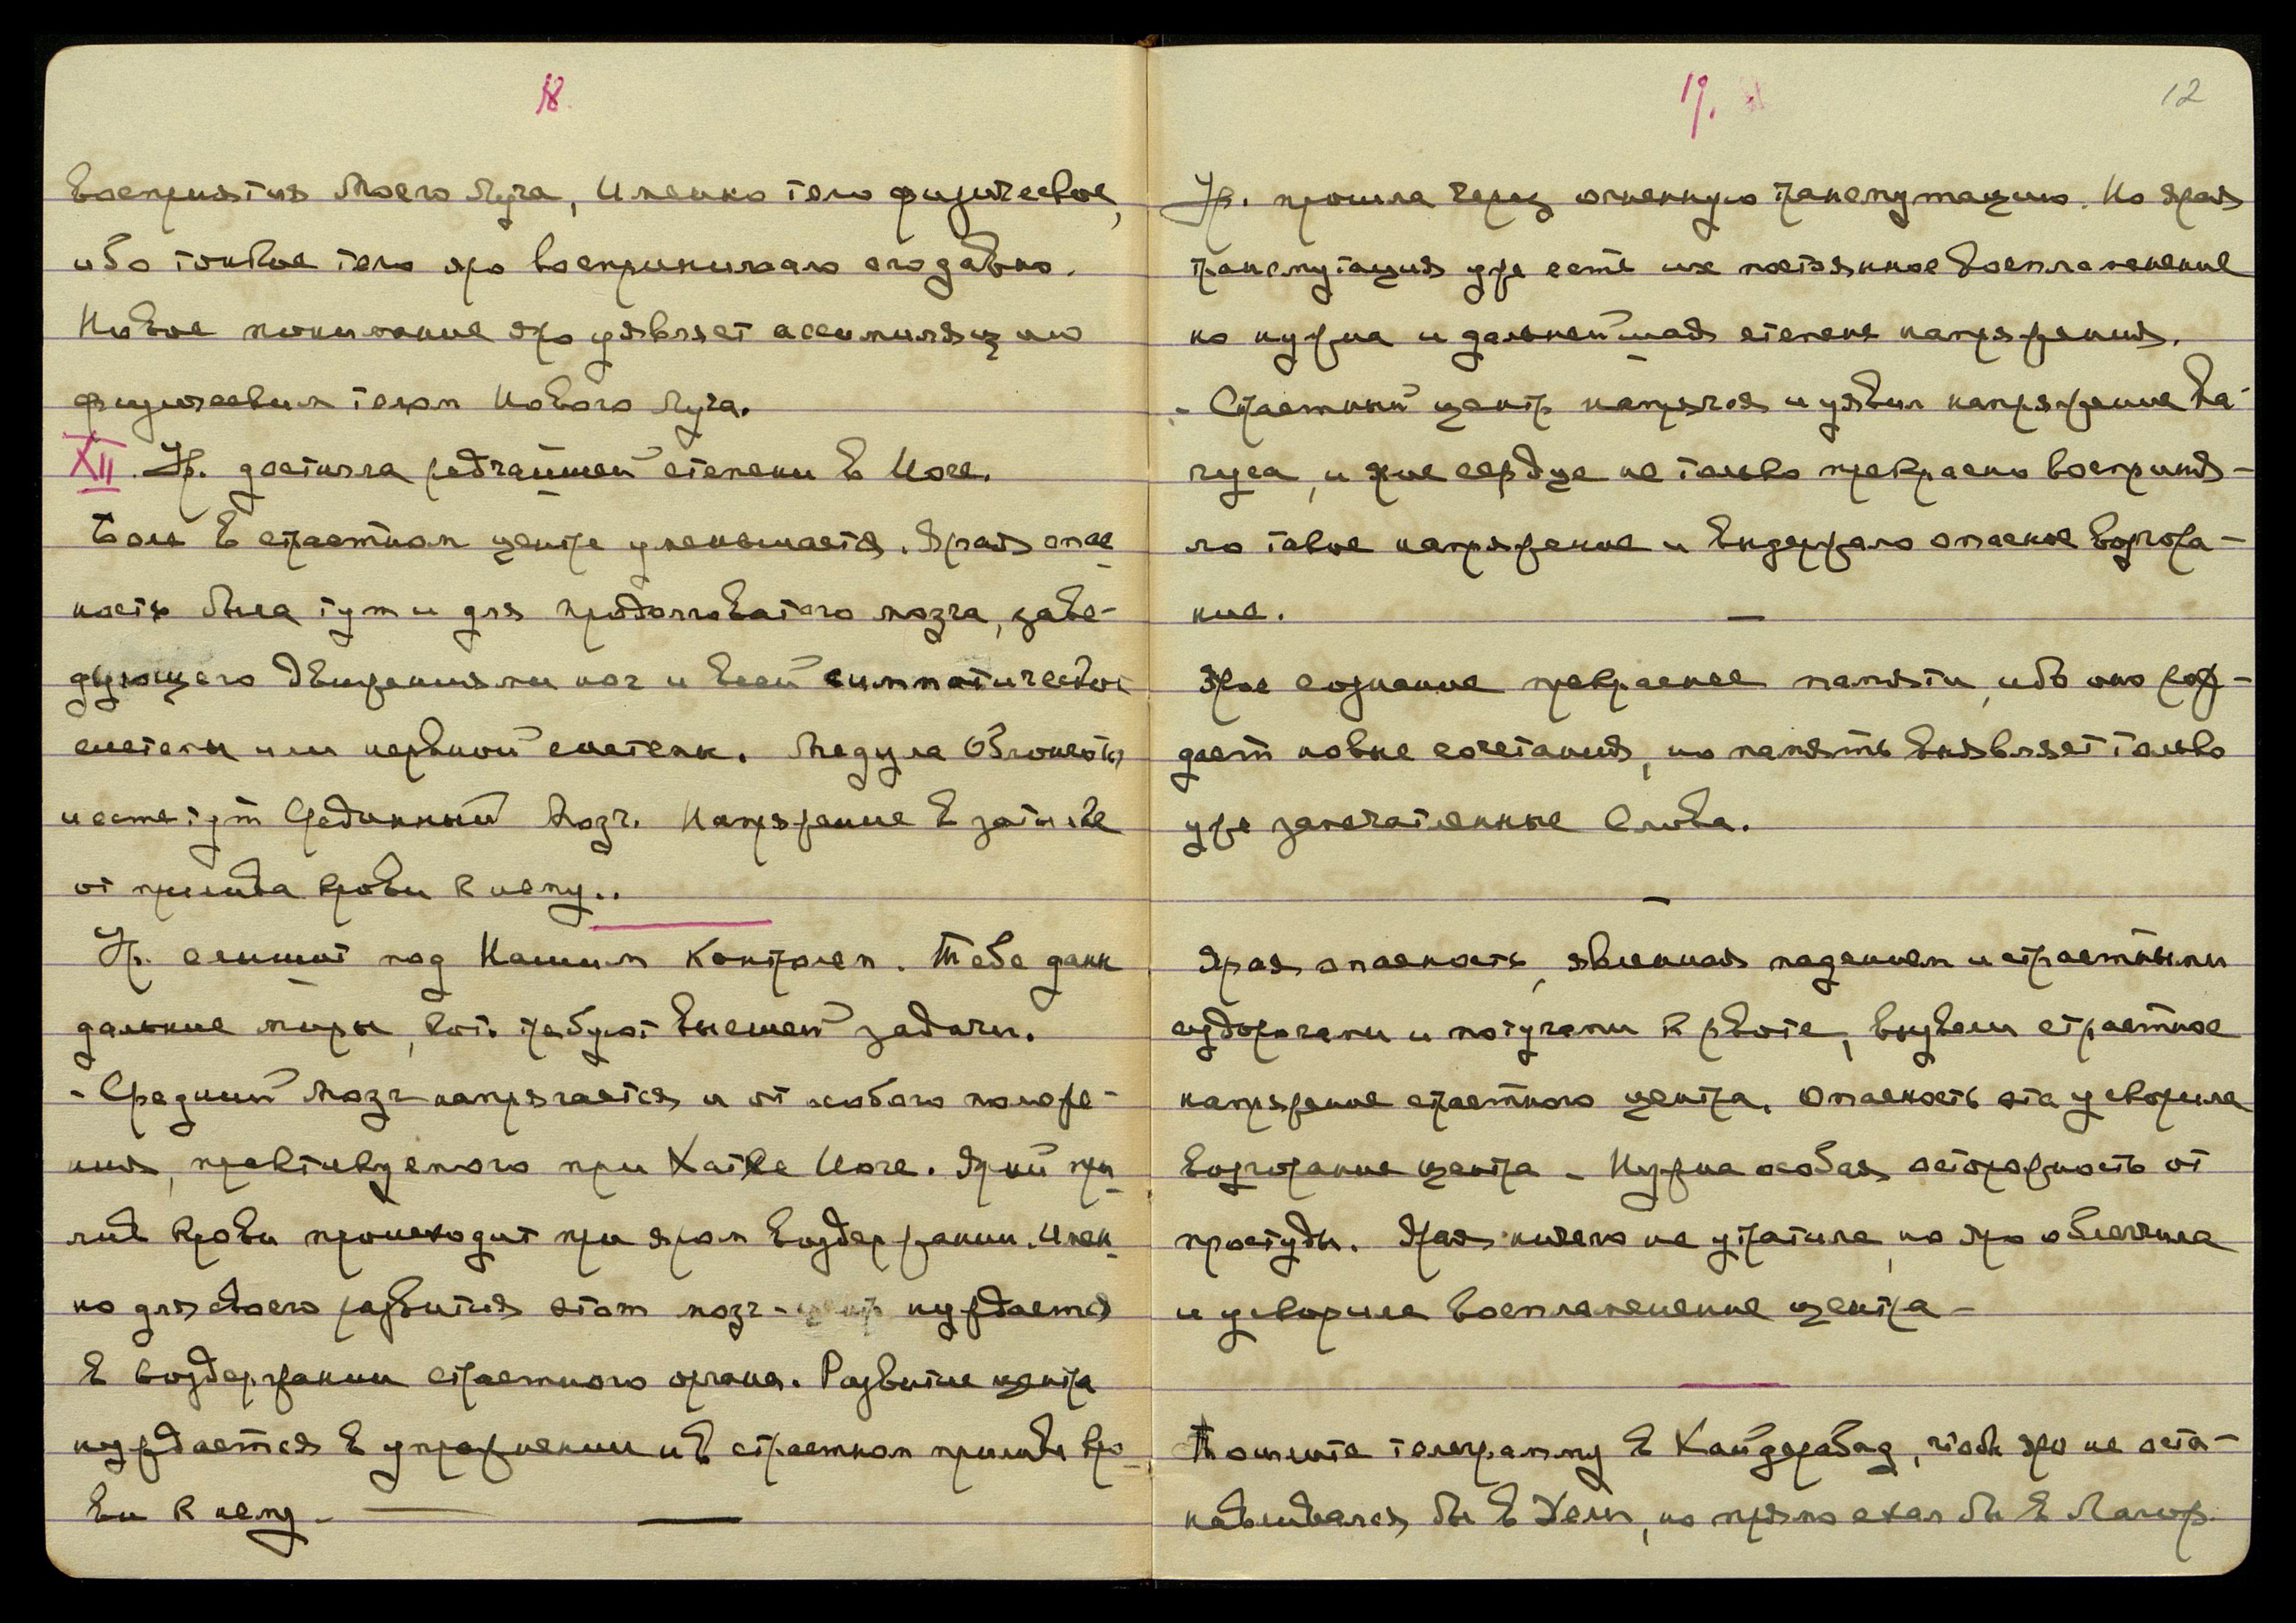 18.
восприятия Моего Луча, Именно тело физическое,
ибо тонкое тело яро воспринимало его давно.
Новое понимание яро уявляет ассимиляцию
физическим телом Нового Луча.
XII. Ур. достигла редчайшей степени в Йоге.
Боль в страстном центре уменьшается. Ярая опас-
ность была тут и для продолговатого мозга, заве-
дующего движениями ног и всей симпатической
системы или нервной системы. Медула Облонгота
и есть тут Срединный Мозг. Напряжение в затылке
от прилива крови к нему..
Ур. слышит под Нашим Контролем. Тебе даны
дальние миры, кот. требуют высшей задачи.
- Средний Мозг напрягается и от особого положе-
ния, практикуемого при Хатке Йоге. Ярый при-
лив крови происходит при яром воздержании. Имен-
но для своего развития этот мозг-центр нуждается
в воздержании страстного органа. Развитие центра
нуждается в упражнении и в страстном приливе кро-
ви к нему -
19. 12
Ур. прошла через огненную трансмутацию. Но ярая
трансмутация уже есть их постоянное воспламенение
но нужна и дальнейшая степень напряжения.
- Страстный центр напрягся и уявил напряжение Ва-
гуса, и ярое сердце не только прекрасно восприня-
ло такое напряжение и выдержало опасное возгора-
ние.
Ярое сознание прекраснее памяти, ибо оно рож-
дает новые сочетания, но память выявляет только
уже запечатленные Слова.
Ярая опасность, явленная падением и страстными
судорогами и потугами к рвоте, вызвали страстное
напряжение страстного центра. Опасность эта ускорила
возгорание центра - Нужна особая осторожность от
простуды. Ярая ничего не утратила, но яро облегчила
и ускорила воспламенение центра -
Пошлите телеграмму в Хайдерабад, чтобы яро не оста-
навливался бы в Дели, но прямо ехал бы в Лагор.